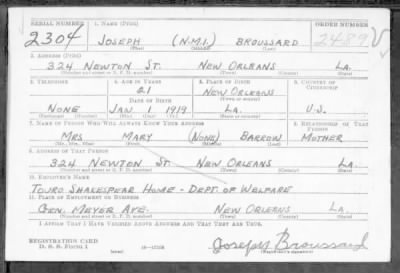 SERIAL NUMBER 1. NAME (Print) ORDER NUMBER
2304 JOSEPH (N.M.I.) BROUSSARD 2489
(First) (Middle) (Last)
2. ADDRESS (Print)
324 NEWTON ST. NEW ORLEANS LA.
(Number and street or R. F. D. number) (Town) (County) (State)
3. TELEPHONE 4. AGE IN YEARS 5. PLACE OF BIRTH 6. COUNTRY OF CITIZENSHIP
21 NEW ORLEANS
DATE OF BIRTH (Town or county)
NONE JAN. 1 1919 LA. U.S.
7. NAME OF PERSON WHO WILL ALWAYS KNOW YOUR ADDRESS 8. RELATIONSHIP OF THAT PERSON
MRS. MARY (NONE) BARROW MOTHER
(Mr., Mrs., Miss) (First) (Middle) (Last)
9. ADDRESS OF THAT PERSON
324 NEWTON ST. NEW ORLEANS LA.
(Number and street or R. F. D. number) (Town) (County) (State)
10. EMPLOYER'S NAME
TOURO SHAKESPEAR HOME - DEPT. OF WELFARE
11. PLACE OF EMPLOYMENT OR BUSINESS
GEN. MEYER AVE. NEW ORLEANS LA.
(Number and street or R. F. D. number) (Town) (County) (State)
I AFFIRM THAT I HAVE VERIFIED ABOVE ANSWERS AND THAT THEY ARE TRUE.
REGISTRATION CARD
D. S. S. Form 1 Joseph Broussard
(Registrant's signature)